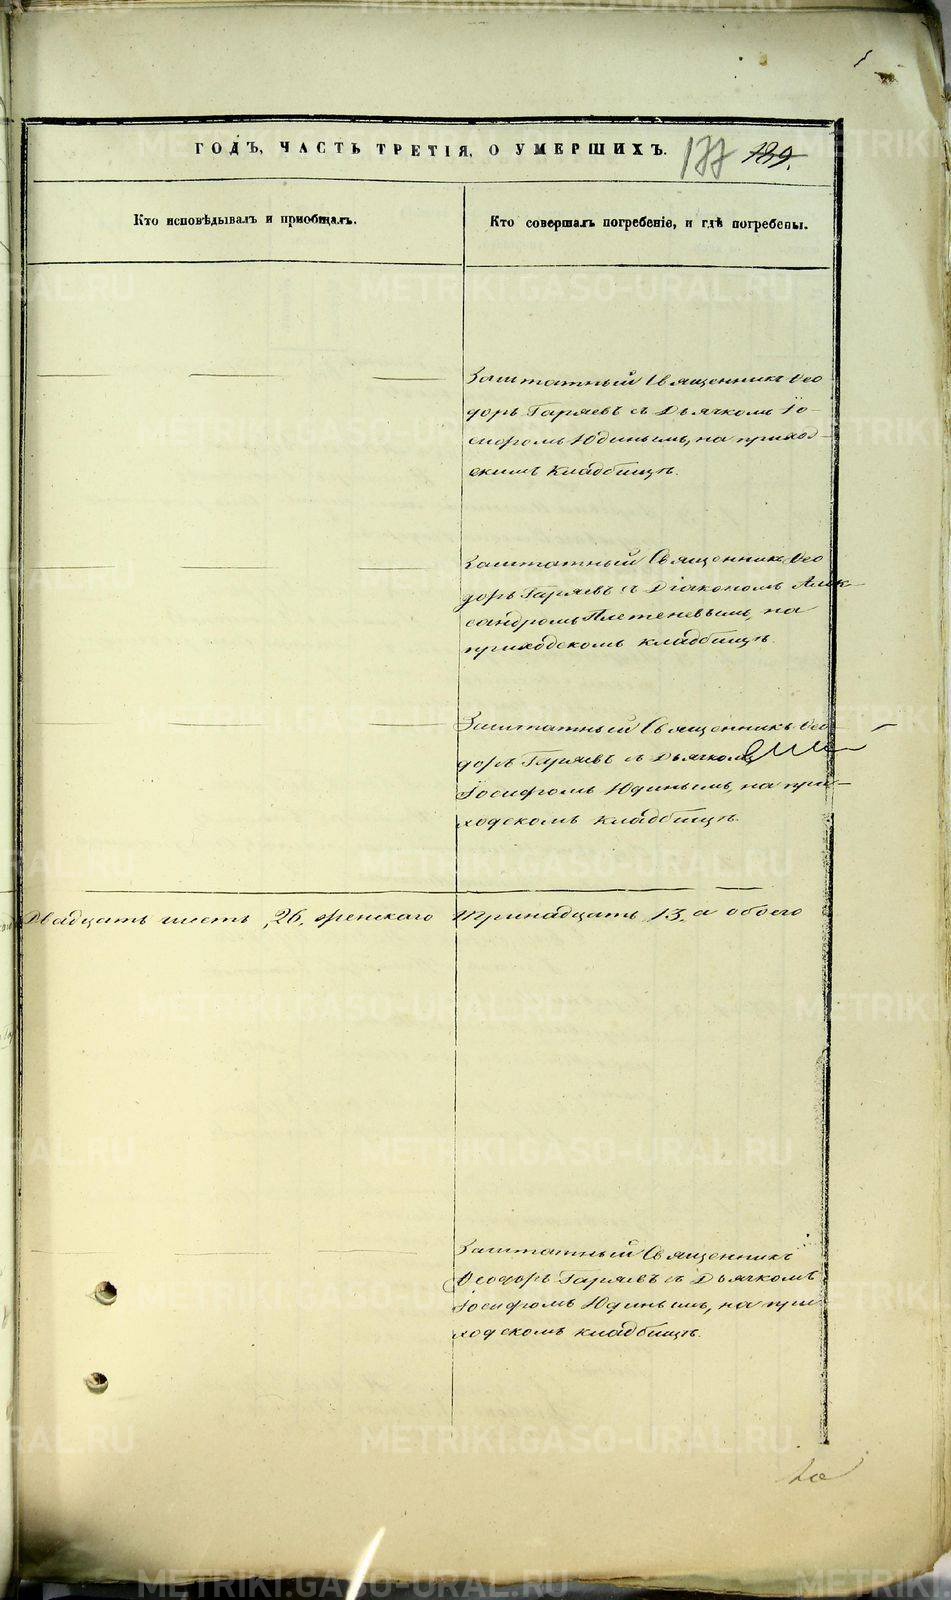 ГОДЪ, ЧАСТЬ ТРЕТІЯ, О УМЕРШИХЪ. 177 189.
Кто исповѣдывалъ и приобщалъ.
Кто совершалъ погребеніе, и гдѣ погребены.
Заштатный Священникъ Ѳео
доръ Гаряевъ съ Дьячкомъ Іо-
сифомъ Юдинымъ, на приход-
скимъ кладбищѣ.
Заштатный Священникъ Ѳео
доръ Гаряевъ съ Діакономъ Алек-
сандромъ Плетеневымъ, на
приходскомъ кладбищѣ.
Заштатный Священникъ Ѳео-
доръ Гаряевъ съ Дьячкомъ
Іосифомъ Юдинымъ, на при-
ходскомъ кладбищѣ.
Двадцать шесть, 26, женскаго Тринадцать 13, а обоего
Заштатный Священникъ
Ѳеодоръ Гаряевъ съ Дьячкомъ
Іосифомъ Юдинымъ, на при-
ходскомъ кладбищѣ.
METRIKI.GASO-URAL.RU